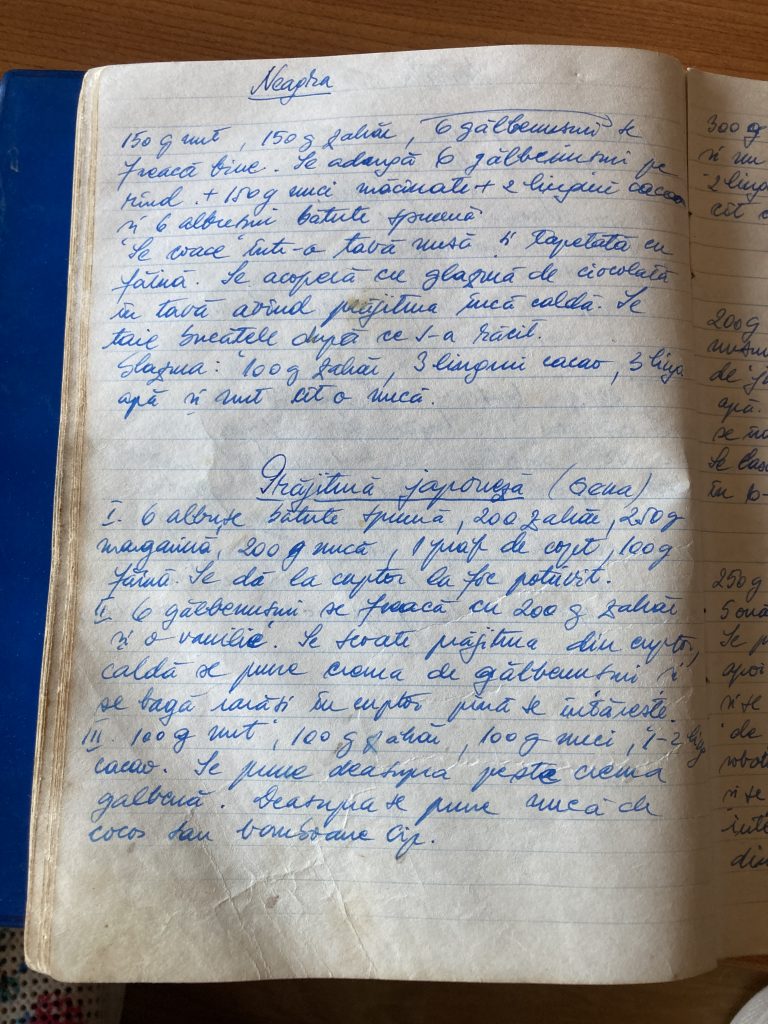 Neagra
150 g unt, 150 g zahăr, 6 gălbenușuri se
freacă bine. Se adaugă 6 gălbenușuri pe
rînd. + 150 g nuci măcinate + 2 linguri cacao
și 6 albușuri bătute spumă
Se coace într-o tavă unsă și tapetată cu
făină. Se acoperă cu glazură de ciocolată
în tavă avînd prăjitura încă caldă. Se
taie bucățele după ce s-a răcit.
Glazura: 100 g zahăr, 3 linguri cacao, 3 ling
apă și unt cît o nucă.
Prăjitură japoneză (Gena)
I. 6 albușe bătute spumă, 200 zahăr, 250 g
margarină, 200 g nucă, 1 praf de copt, 100 g
făină. Se dă la cuptor la foc potrivit.
II 6 gălbenușuri se freacă cu 200 g zahăr
și o vanilie. Se scoate prăjitura din cuptor,
caldă se pune crema de gălbenușuri și
se bagă iarăși în cuptor pînă se întărește.
III. 100 g unt, 100 g zahăr, 100 g nuci, 1-2 ling
cacao. Se pune deasupra peste crema
galbenă. Deasupra se pune nucă de
cocos sau bomboane cip.
300 g
și un
2 ling
cît
200 g
de
apă.
se
Se
în
250 g
5 ouă
Se p
apoi
și se
de
și se
din